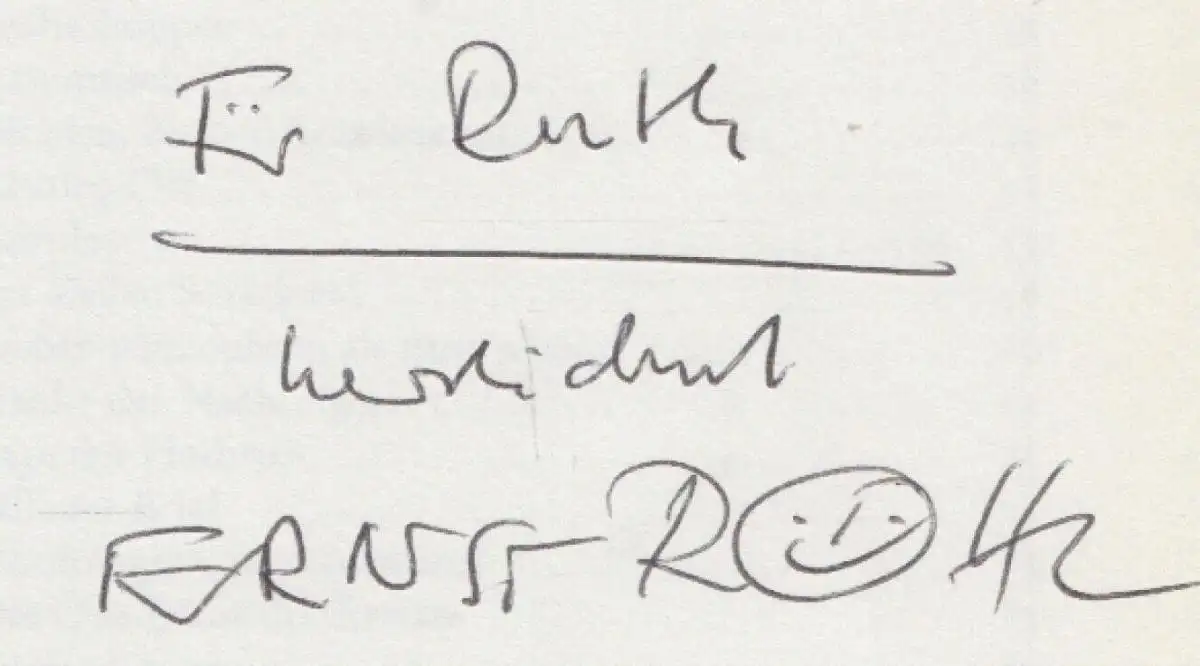 Für Ruth
herzlichst
ERNST RÖHL